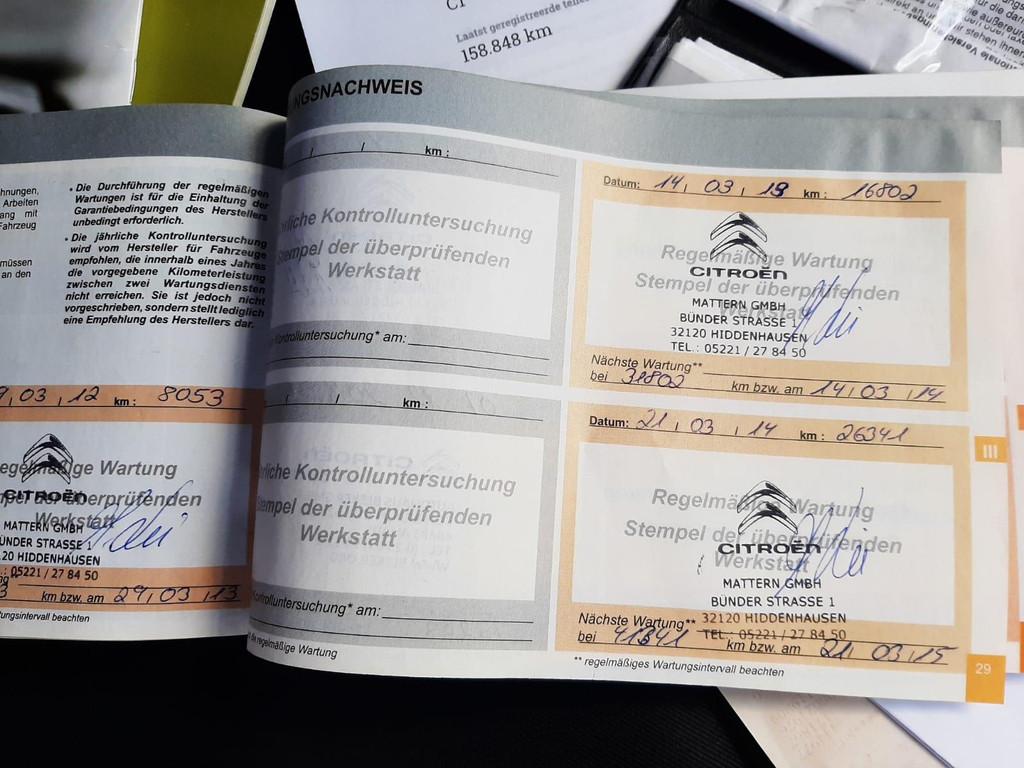 C1
Laatst geregistreerde
158.848 km
hnungen,
Arbeiten
ang mit
Fahrzeug
müssen
an den
• Die Durchführung der regelmäßigen
Wartungen ist für die Einhaltung der
Garantiebedingungen des Herstellers
unbedingt erforderlich.
• Die jährliche Kontrolluntersuchung
wird vom Hersteller für Fahrzeuge
empfohlen, die innerhalb eines Jahres
die vorgegebene Kilometerleistung
zwischen zwei Wartungsdiensten
nicht erreichen. Sie ist jedoch nicht
vorgeschrieben, sondern stellt lediglich
eine Empfehlung des Herstellers dar.
9, 03, 12 km: 8053
egelmäßige Wartung
Stempel der überprüfenden
Werkstatt
CITROËN
MATTERN GMBH
BÜNDER STRASSE 1
120 HIDDENHAUSEN
05221 / 27 84 50
km bzw. am 29, 03, 13
tungsintervall beachten
NGSNACHWEIS
/ / km :
rliche Kontrolluntersuchung
Stempel der überprüfenden
Werkstatt
Kontrolluntersuchung* am:
/ / km :
rliche Kontrolluntersuchung
Stempel der überprüfenden
Werkstatt
Kontrolluntersuchung* am:
die regelmäßige Wartung
Datum: 14, 03, 13 km : 16802
Regelmäßige Wartung
Stempel der überprüfenden
Werkstatt
CITROËN
MATTERN GMBH
BÜNDER STRASSE 1
32120 HIDDENHAUSEN
TEL.: 05221 / 27 84 50
Nächste Wartung**
bei 31802 km bzw. am 14, 03, 14
Datum: 21, 03, 14 km : 26341
Regelmäßige Wartung
Stempel der überprüfenden
Werkstatt
CITROËN
MATTERN GMBH
BÜNDER STRASSE 1
32120 HIDDENHAUSEN
TEL.: 05221 / 27 84 50
Nächste Wartung**
bei 41341 km bzw. am 21, 03, 15
** regelmäßiges Wartungsintervall beachten
III
29